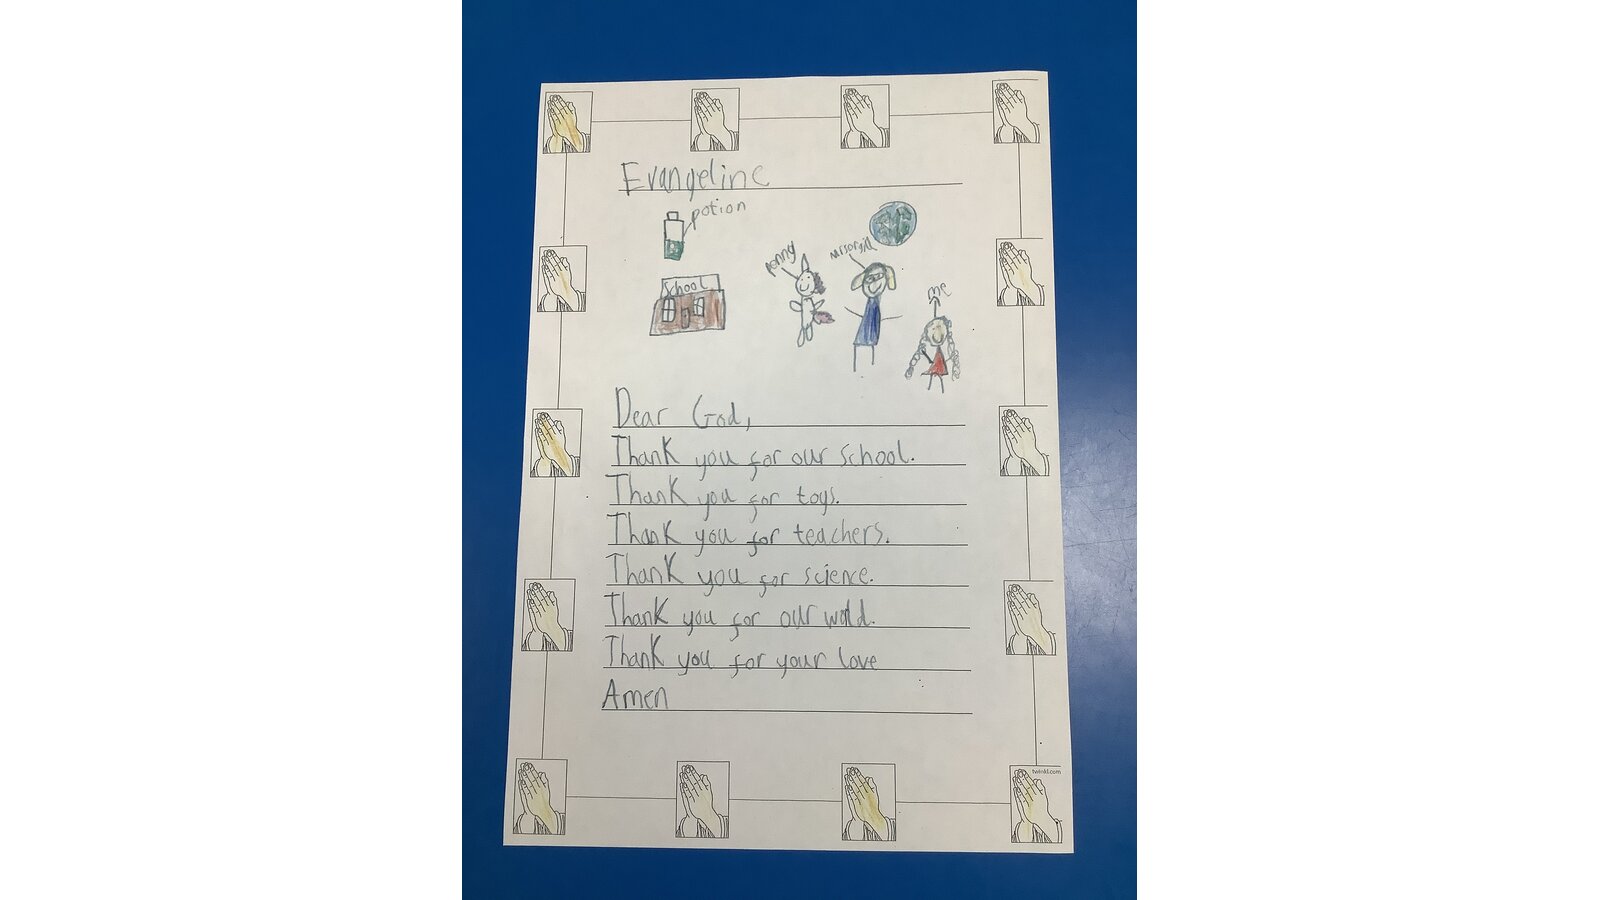 Evangeline
potion
School
Penny
me
Dear God,
Thank you for our school.
Thank you for toys.
Thank you for teachers.
Thank you for science.
Thank you for our world.
Thank you for your love
Amen
twinkl.com